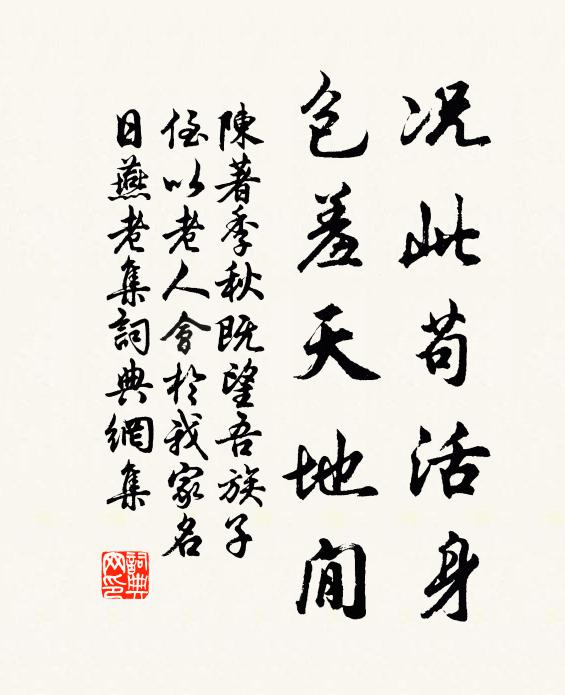 况此苟活身
包羞天地間
陳著季秋既望吾族子
侄以老人會於我家名
日燕老集詞典網集
詞典
网印